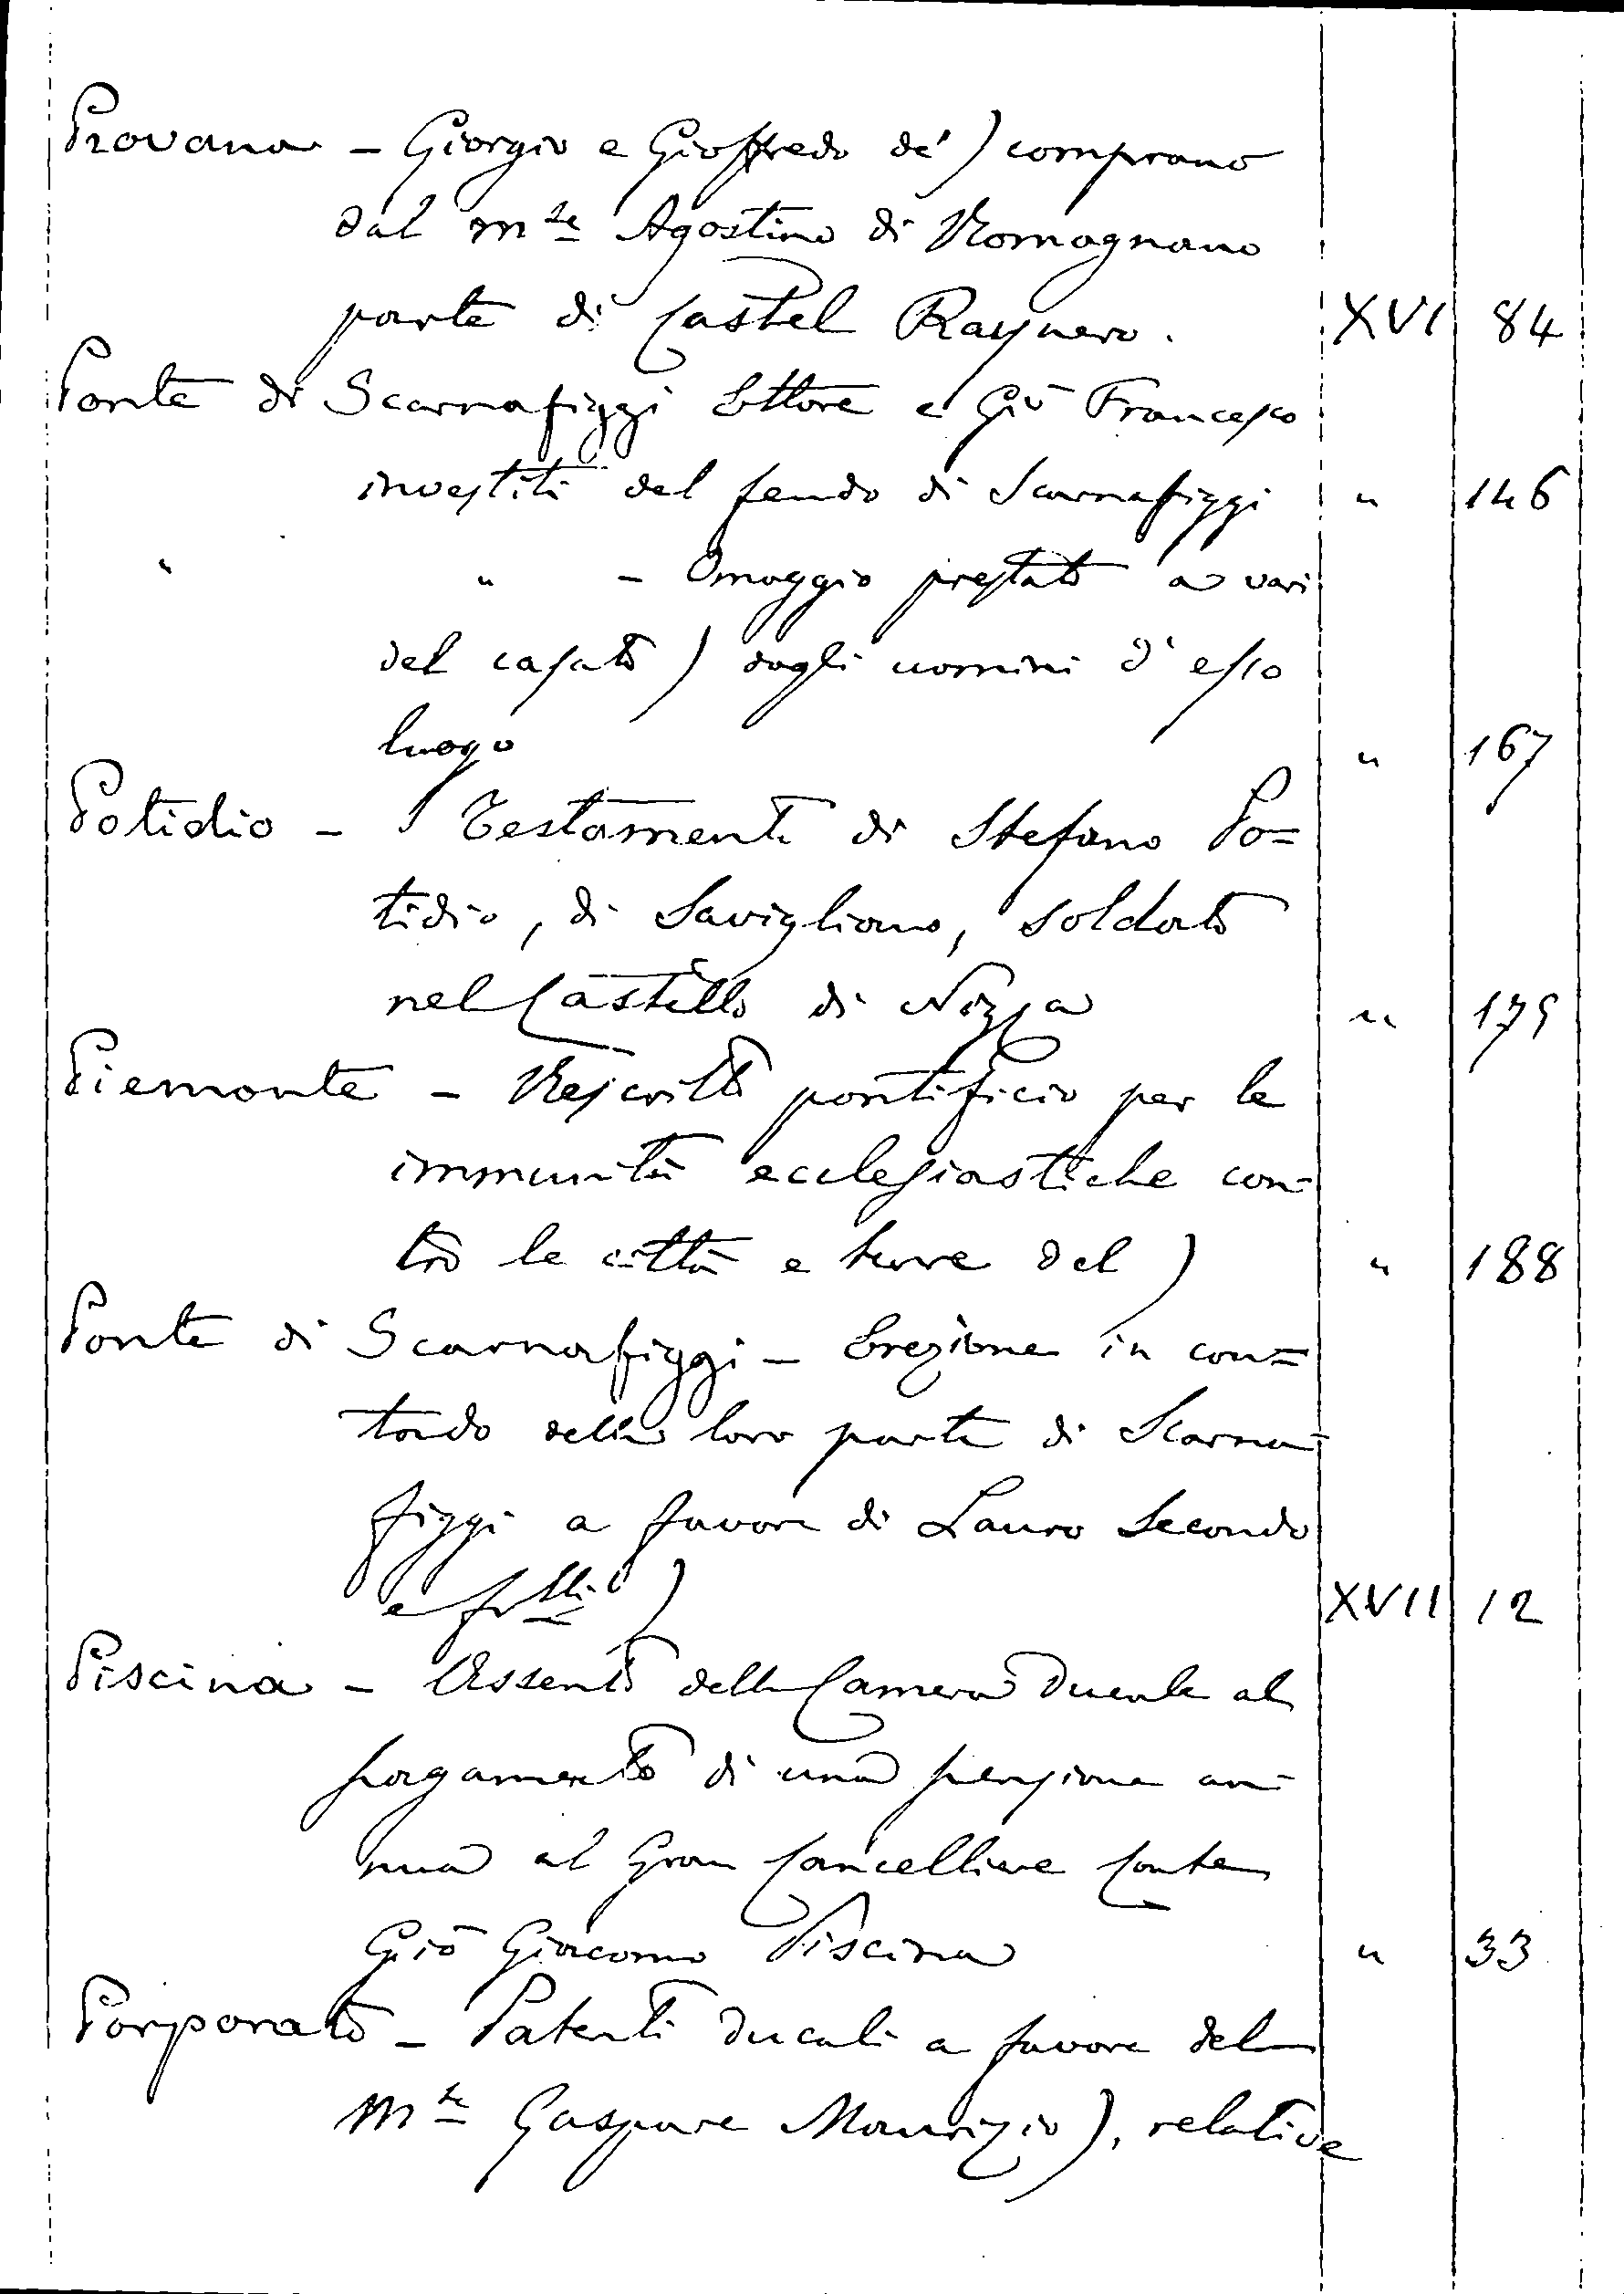 Provana - Giorgio e Gioffredo de') comprano
dal m.te Agostino di Romagnano
parte di Castel Raynero. XVI 84
Ponte di Scarnafiggi Ettore e Giō Francesco
investiti del feudo di Scarnafiggi " 146
" " - Omaggio prestato a vari
del casato) dagli uomini d'esso
luogo " 167
Potidio - Testamenti di Stefano Po=
tidio, di Savigliano, soldato
nel Castello di Nizza " 175
Piemonte - Rescritto pontificio per le
immunità ecclesiastiche con-
tro le città e terre del) " 188
Ponte di Scarnafiggi - Erezione in con=
tado della loro parte di Scarna-
figgi a favore di Lauro Secondo
e frlli) XVII 12
Piscina - Assento della Camera Ducale al
pagamento di una pensione an-
nua al Gran Cancelliere Conte
Giō Giacomo Piscina " 33
Porporato - Patenti Ducali a favore del
M.te Gaspare Maurizio), relative